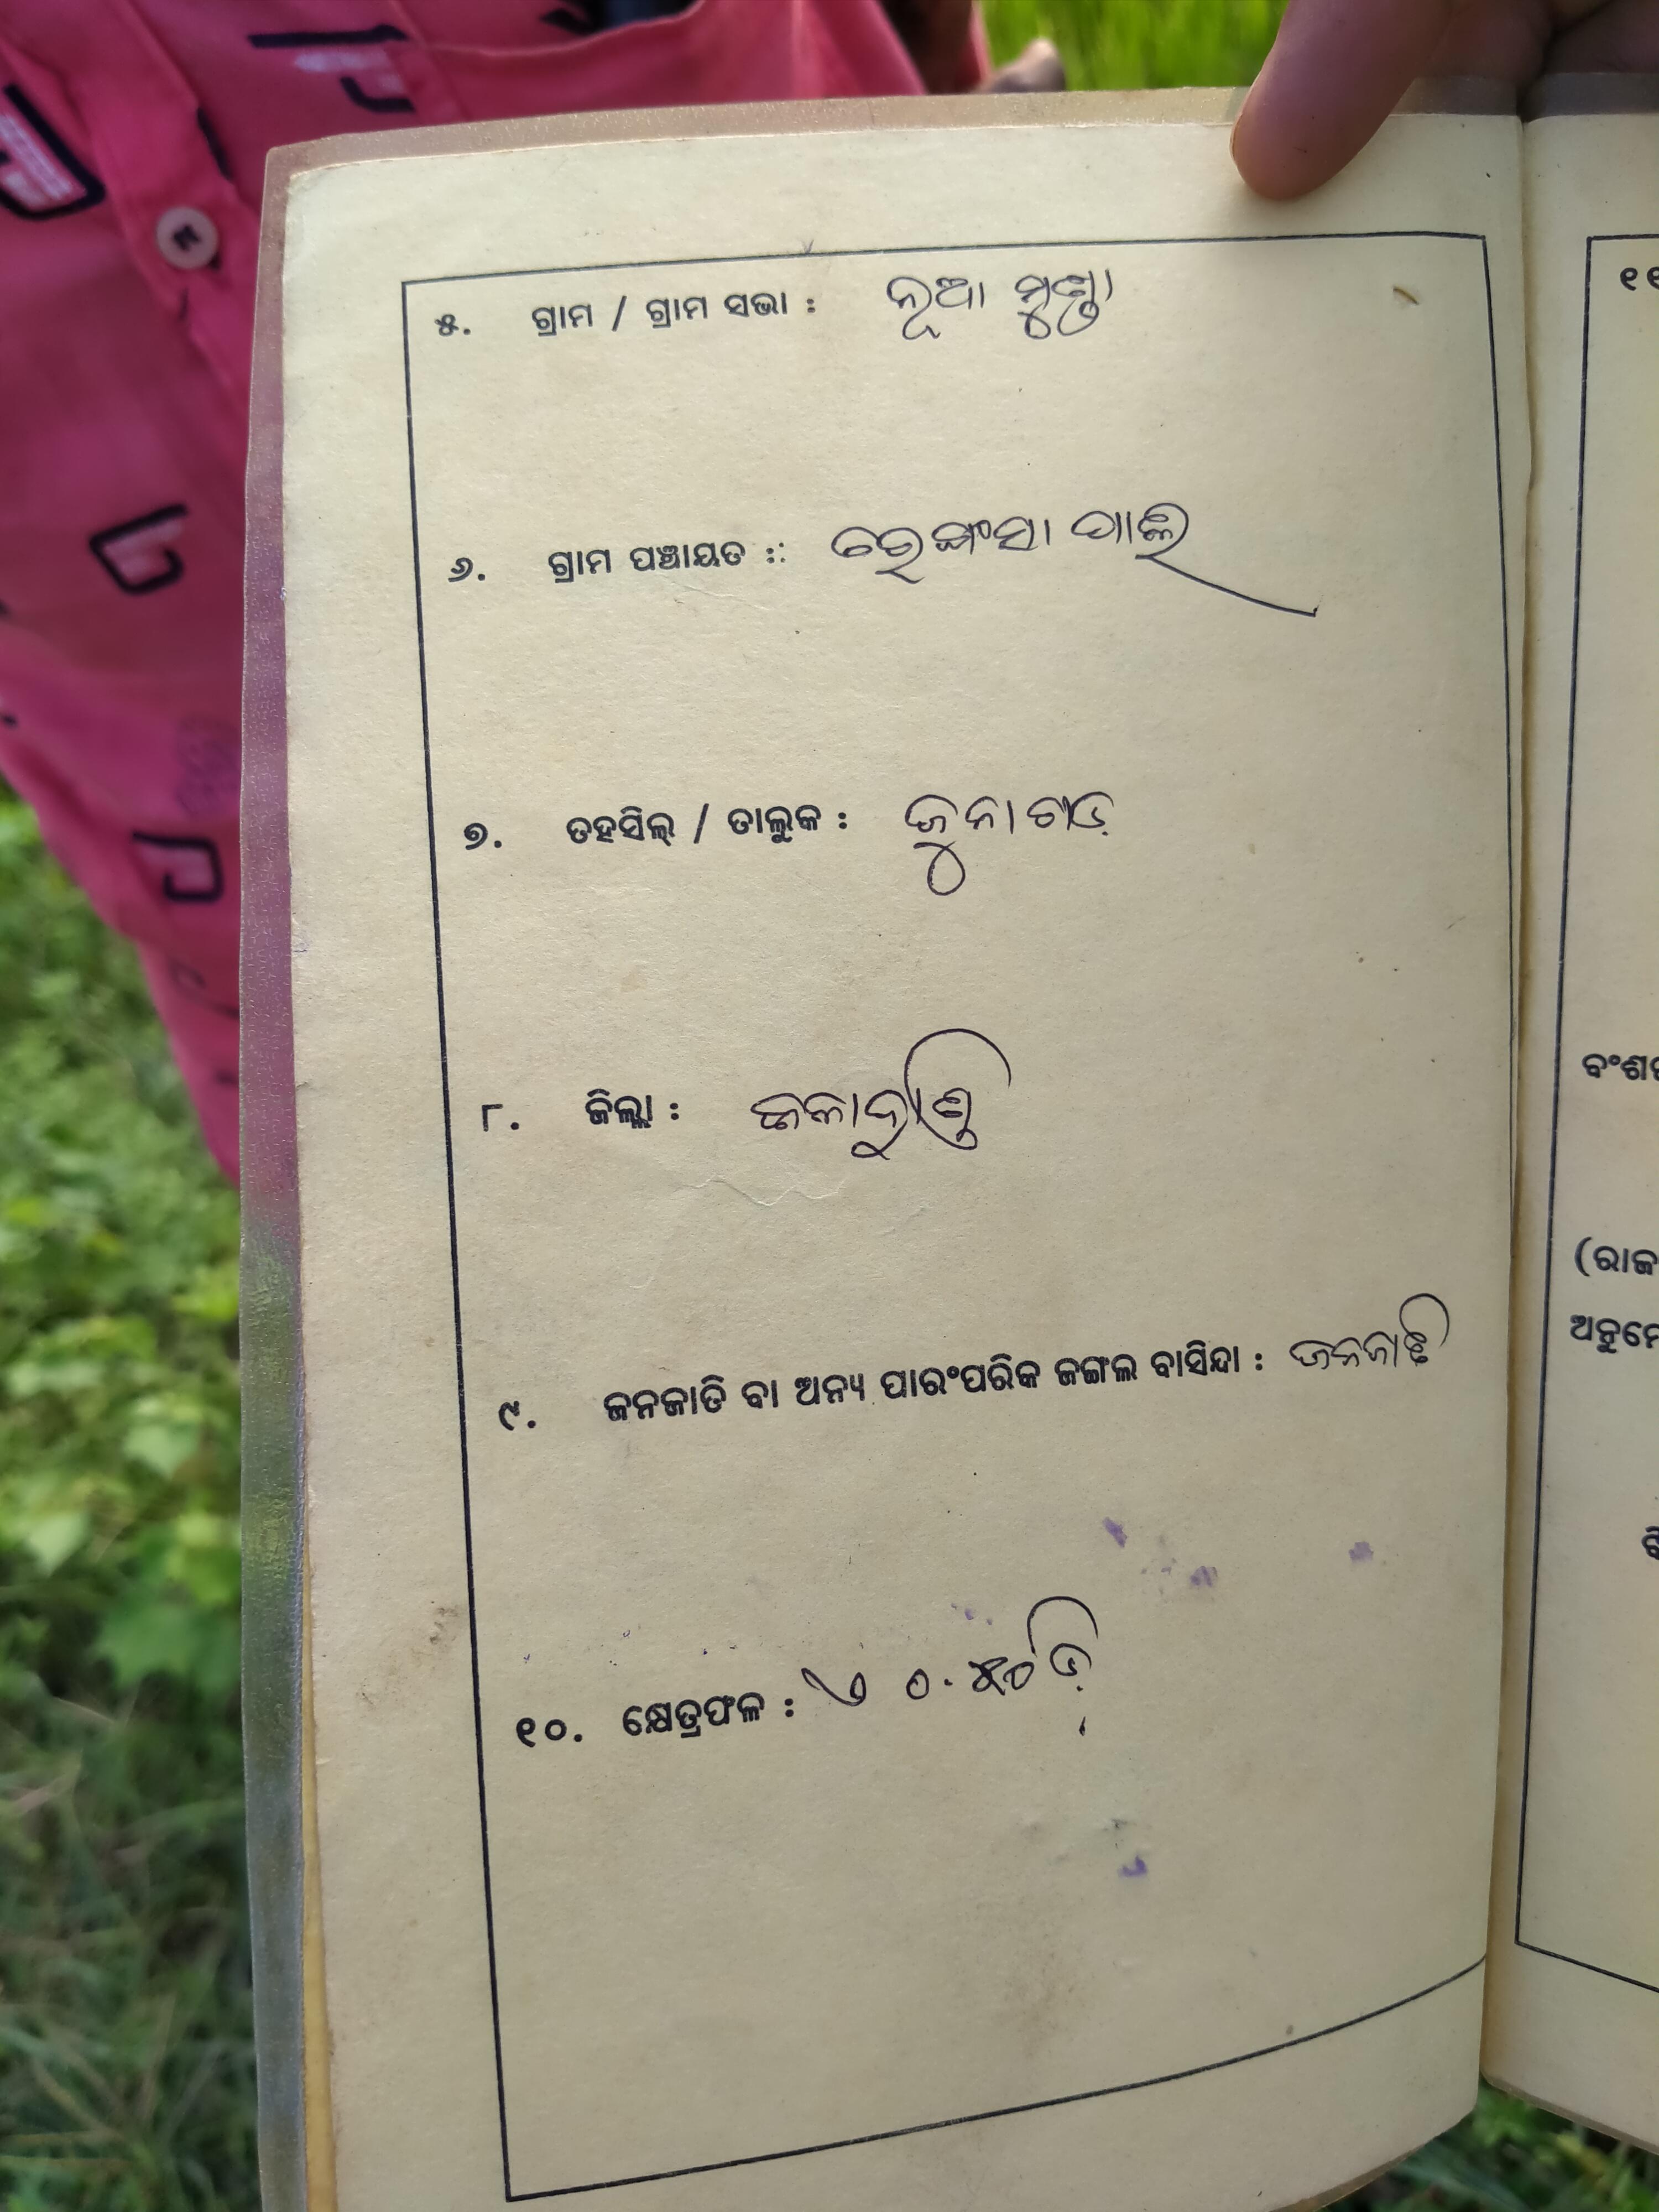 ୫. ଗ୍ରାମ / ଗ୍ରାମ ସଭା : ନୂଆ ମୁଣ୍ଡା
୬. ଗ୍ରାମ ପଞ୍ଚାୟତ :: ପାଲି
୭. ତହସିଲ୍ / ତାଲୁକ : ଜୁନାଗଡ଼
୮. ଜିଲ୍ଲା : କଳାହାଣ୍ଡି
୯. ଜନଜାତି ବା ଅନ୍ୟ ପାରଂପରିକ ଜଙ୍ଗଲ ବାସିନ୍ଦା : ଜନଜାତି
୧୦. କ୍ଷେତ୍ରଫଳ : ଏ ୦.୫୦ ଡି
୧୧
ବଂଶ
(ରାଜ
ଅନୁମୋ